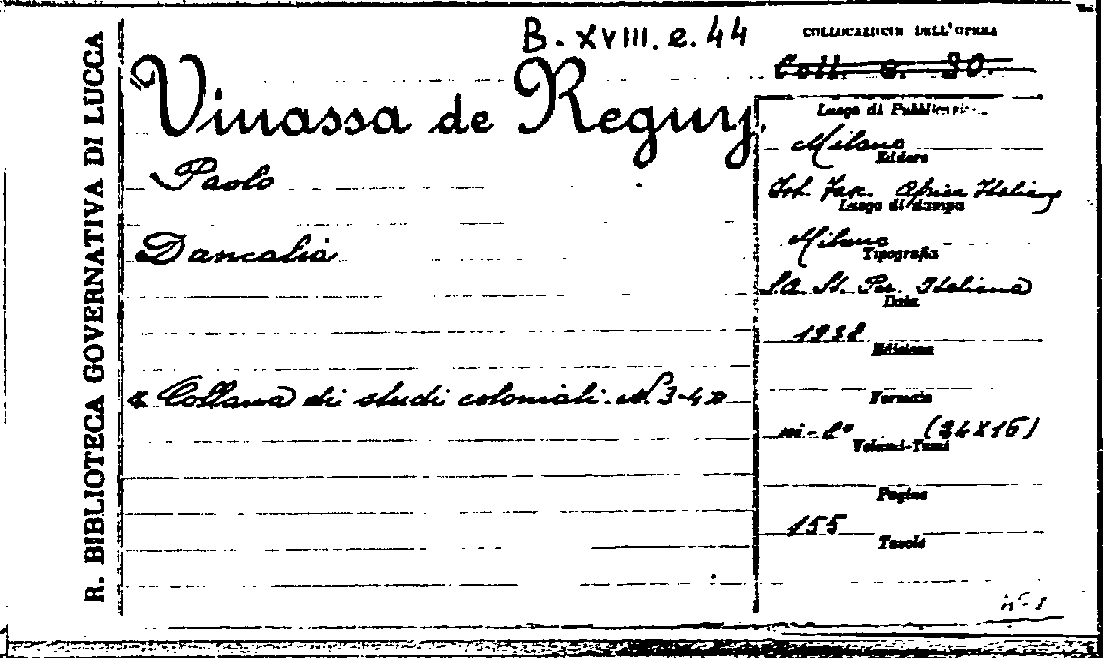 R. BIBLIOTECA GOVERNATIVA DI LUCCA
B. XVIII. e. 44
COLLOCAZIONE DELL'OPERA
Coll. e. 30.
Vinassa de Regny
Paolo
Dancalia
« Collana di studi coloniali. N. 3-4 »
Luogo di Pubblicazione
Milano
Editore
Ist. Fasc. Africa Italiana
Luogo di stampa
Milano
Tipografia
S.A. St. Per. Italiana
Data
1938
Edizione
Formato
in-8° (24X16)
Volumi-Tomi
Pagine
155
Tavole